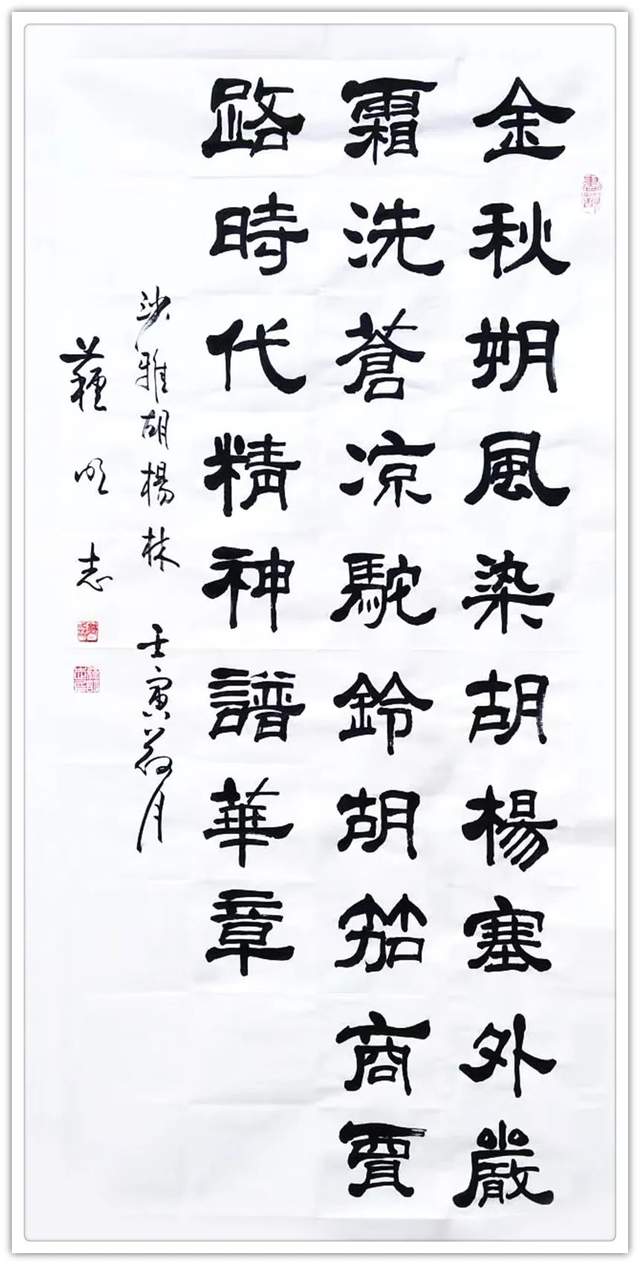 金秋朔風染胡楊塞外嚴
霜洗蒼涼駝鈴胡笳商賈
路時代精神譜華章
沙雅胡楊林 壬寅荷月
明志